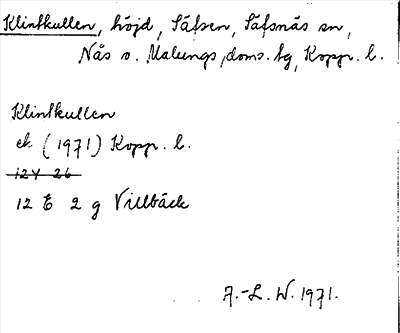 Klintkullen, höjd, Säfsen, Säfsnäs sn,
Nås o. Malungs doms. tg, Koppr. l.
Klintkullen
ek. (1971) Koppr. l.
12 Y 26
12 E 2 g Villbäck
A.-L. W. 1971.